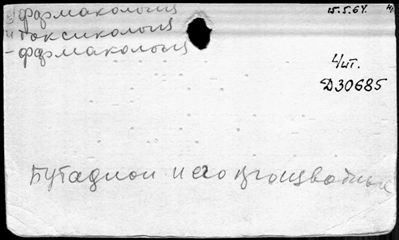 фармакология
15.5.64.
и токсикология
- фармакология
Чит.
Д30685
Бутадион и его производные